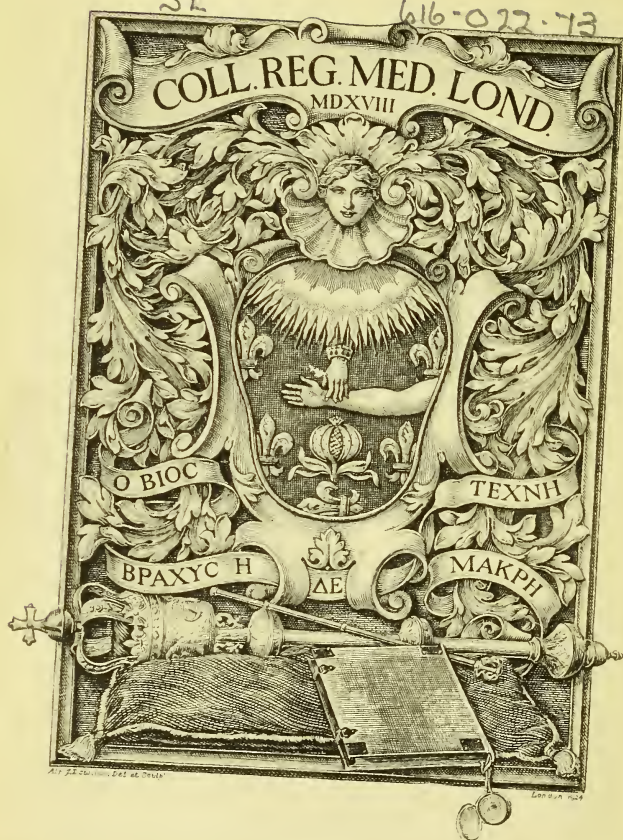 SL 616-022-73
COLL. REG. MED. LOND.
MDXVIII
Ο ΒΙΟC ΤΕΧΝΗ
ΒΡΑΧΥC Η ΔΕ ΜΑΚΡΗ
Del et Sculpt
London